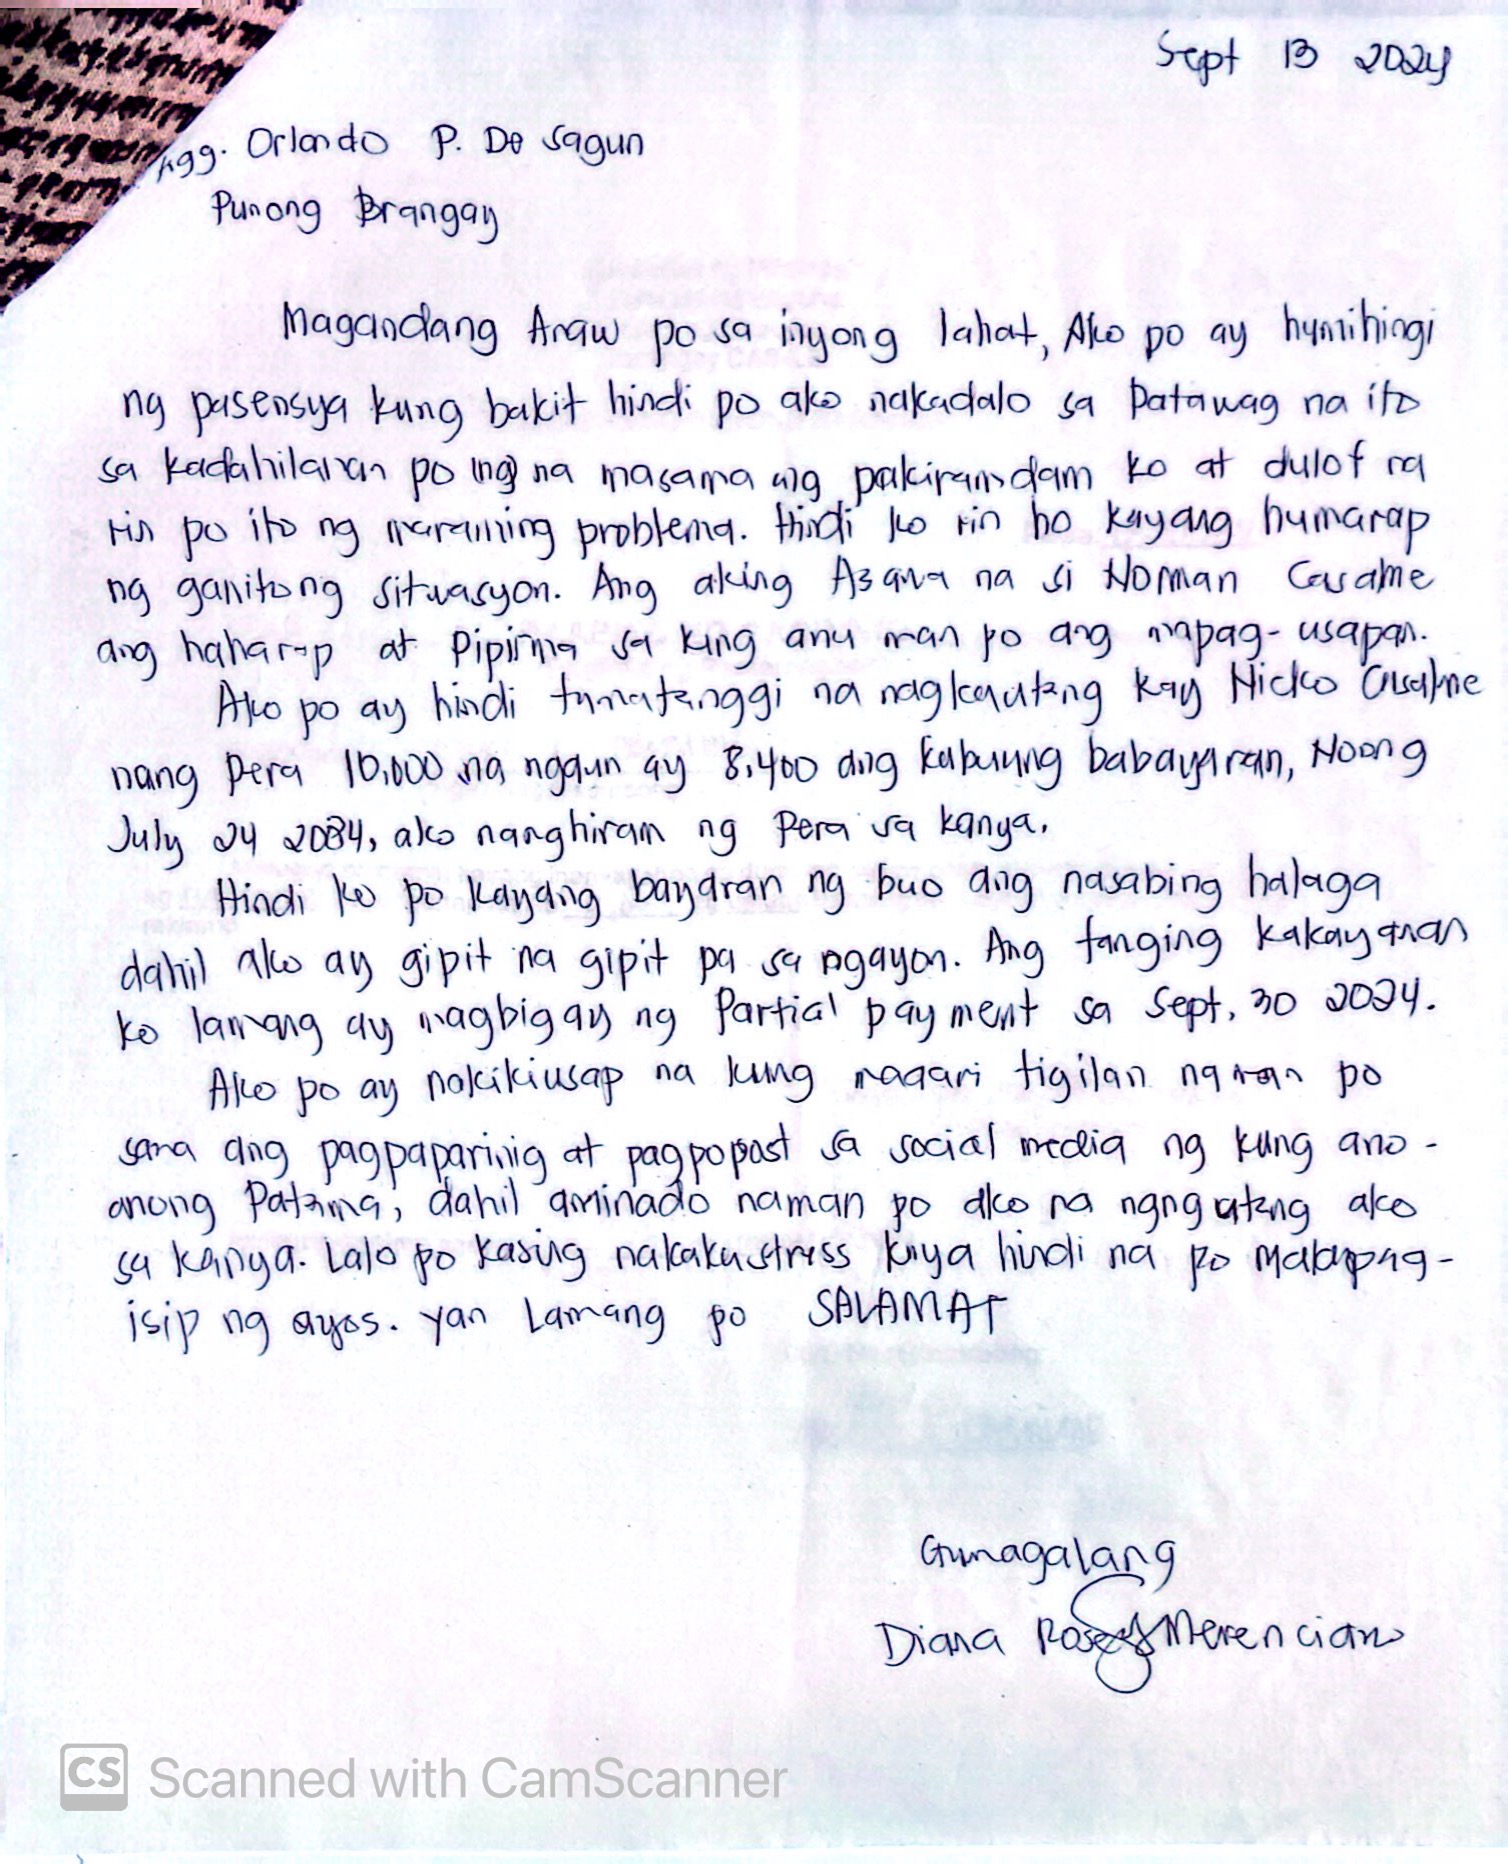 Sept 13 2024
Kgg. Orlando P. De Sagun
Punong Brangay
Magandang Araw po sa inyong lahat, Ako po ay humihingi
ng pasensya kung bakit hindi po ako nakadalo sa Patawag na ito
sa kadahilanan po (ng) na masama ang pakiramdam ko at dulot na
rin po ito ng maraming problema. Hindi ko rin ho kayang humarap
ng ganitong sitwasyon. Ang aking Asawa na si Norman Casame
ang haharap at Pipirma sa kung anu man po ang mapag-usapan.
Ako po ay hindi tumatanggi na nagkautang kay Nicko
nang Pera 10,000 na ngaun ay 8,400 ang kabuung babayaran, Noong
July 24 2024, ako nanghiram ng Pera sa kanya.
Hindi ko po kayang bayaran ng buo ang nasabing halaga
dahil ako ay gipit na gipit pa sa ngayon. Ang tanging kakayanan
ko lamang ay magbigay ng Partial payment sa Sept, 30 2024.
Ako po ay nakikiusap na kung maaari tigilan naman po
sana ang pagpaparinig at pagpopost sa social media ng kung ano-
anong Patama, dahil aminado naman po ako na ngngutang ako
sa kanya. Lalo po kasing nakakastress kaya hindi na po makapag-
isip ng ayos. yan Lamang po SALAMAT
Gumagalang
Diana Rose Merenciano
CS Scanned with CamScanner